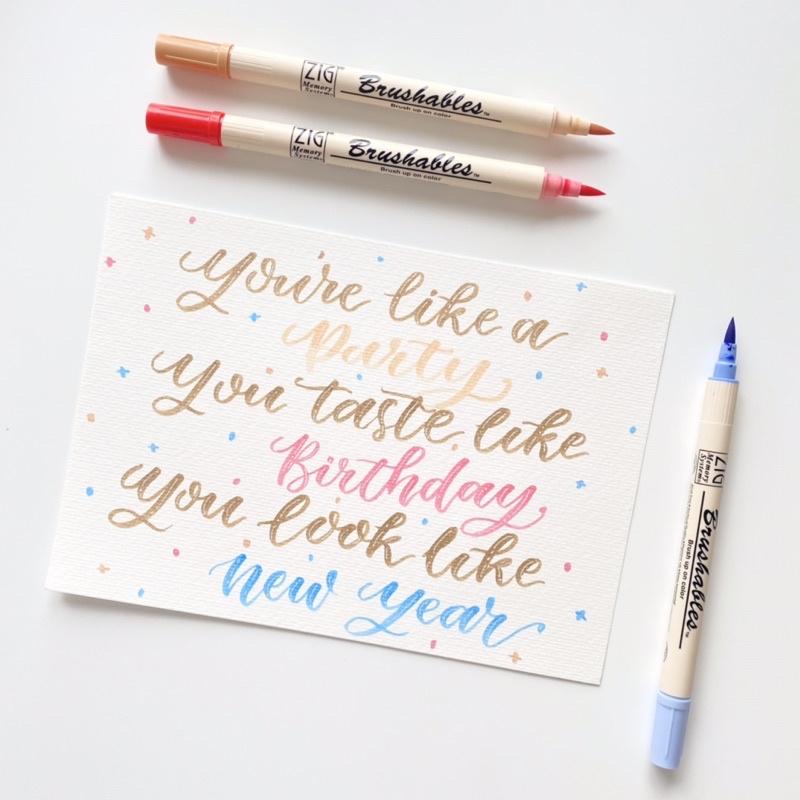 ZIG
Memory System
Brushables™
Brush up on color
ZIG
Memory System
Brushables™
Brush up on color
you're like a
party
you taste like
Birthday
you look like
new year
ZIG
Memory System
Brushables™
Brush up on color